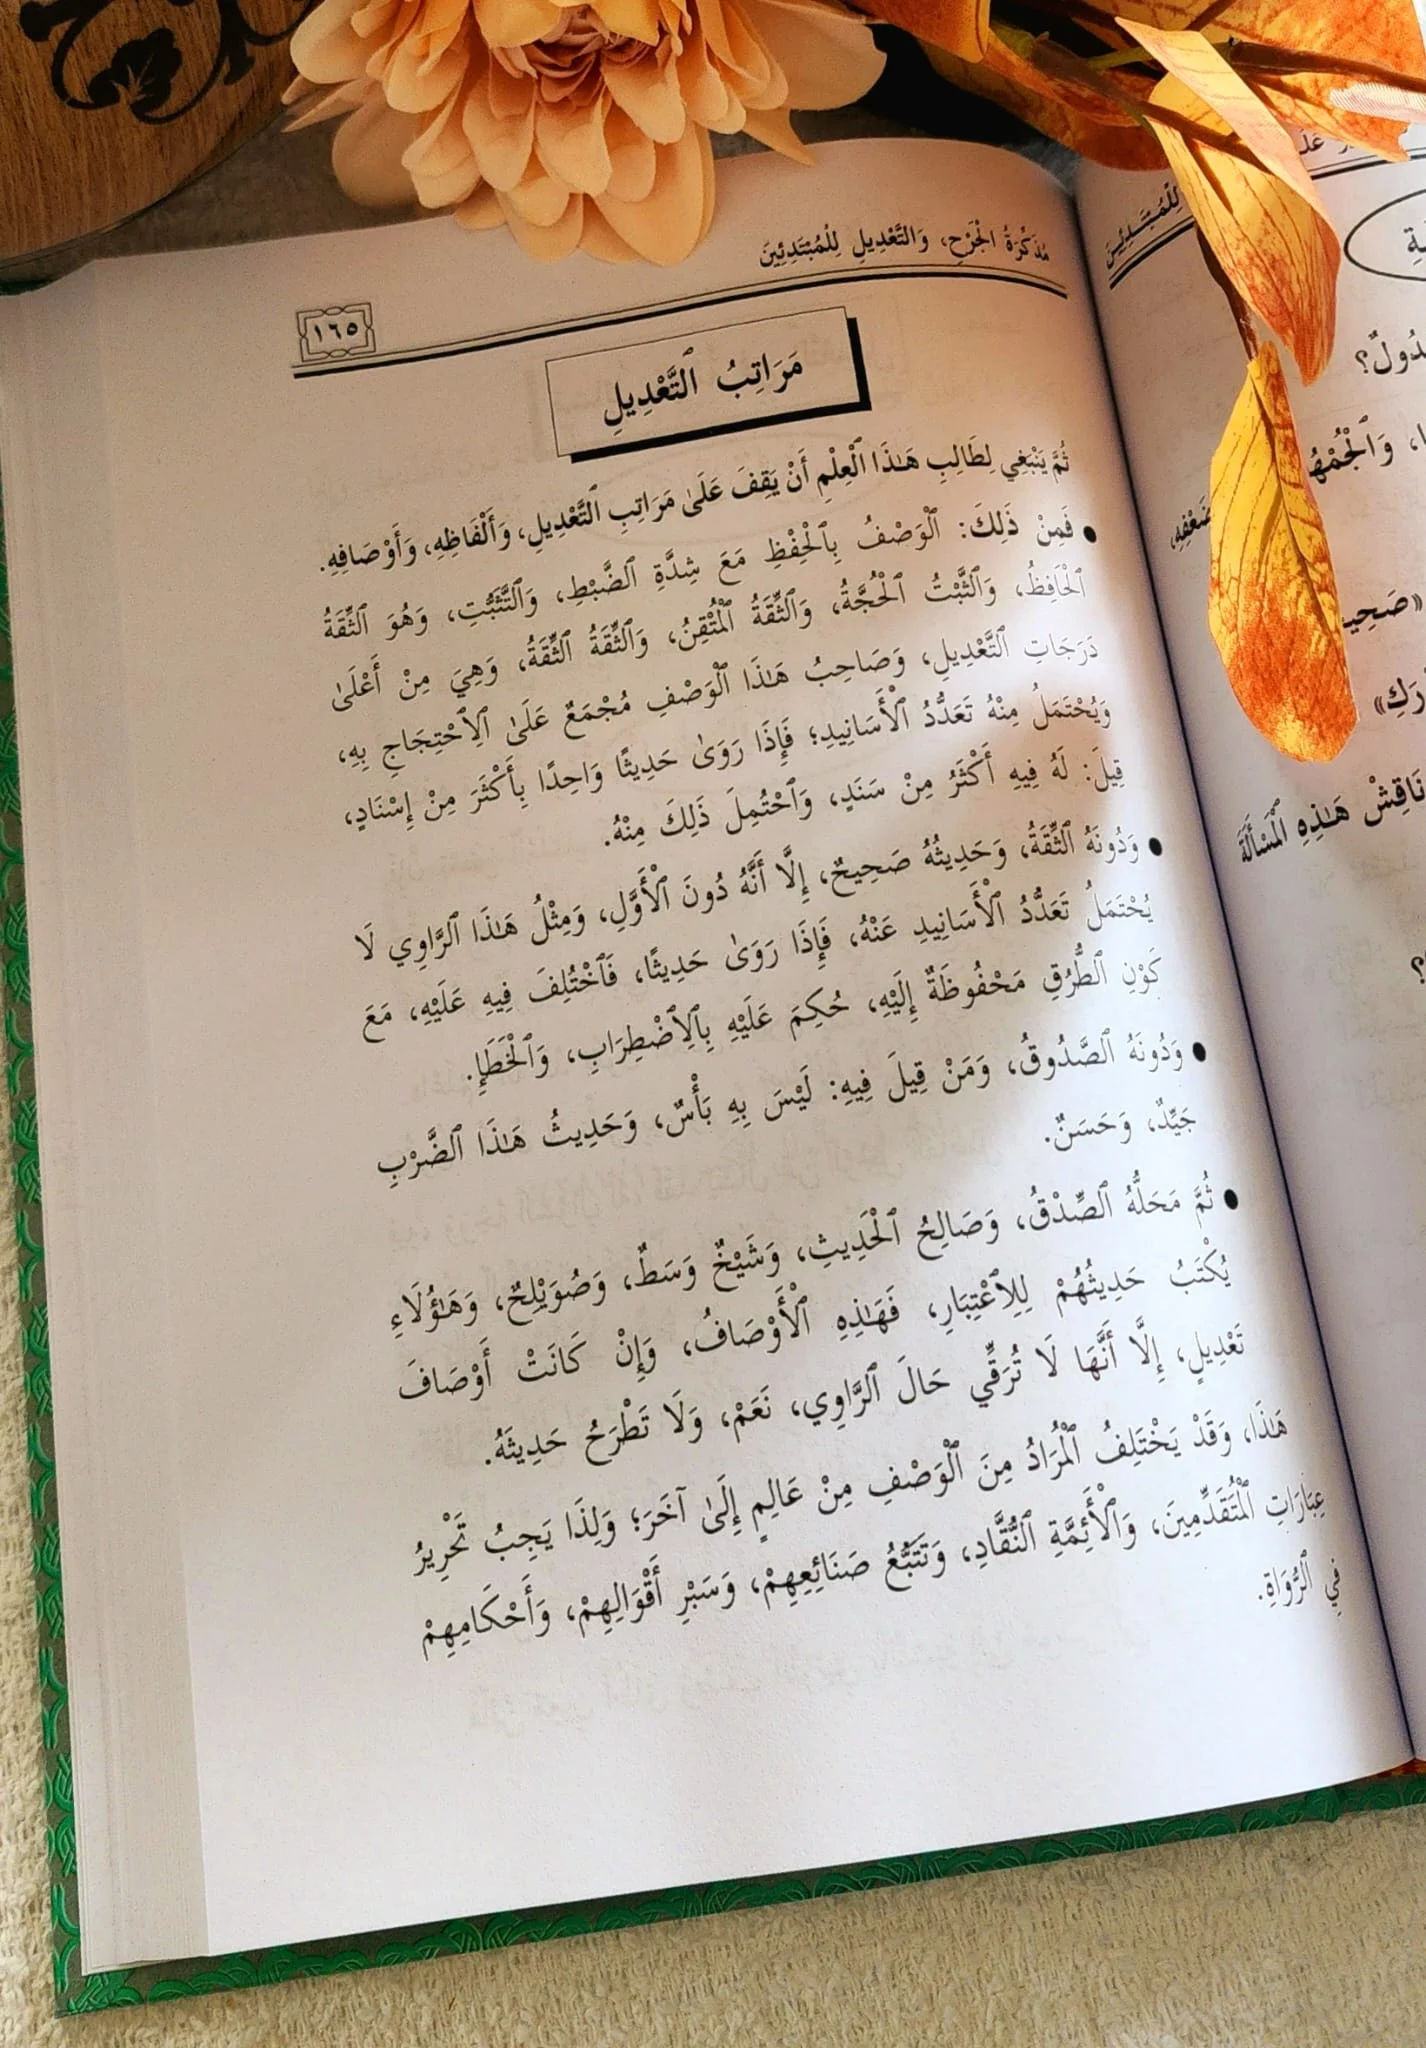 مُذَكِّرَةُ الْجَرْحِ، وَالتَّعْدِيلِ لِلْمُبْتَدِئِينَ
١٦٥
مَرَاتِبُ ٱلتَّعْدِيلِ
ثُمَّ يَنْبَغِي لِطَالِبِ هَـٰذَا ٱلْعِلْمِ أَنْ يَقِفَ عَلَىٰ مَرَاتِبِ ٱلتَّعْدِيلِ، وَأَلْفَاظِهِ، وَأَوْصَافِهِ.
● فَمِنْ ذَلِكَ: ٱلْوَصْفُ بِٱلْحِفْظِ مَعَ شِدَّةِ ٱلضَّبْطِ، وَٱلتَّثَبُّتِ، وَهُوَ ٱلثِّقَةُ
ٱلْحَافِظُ، وَٱلثَّبْتُ ٱلْحُجَّةُ، وَٱلثِّقَةُ ٱلْمُتْقِنُ، وَٱلثِّقَةُ ٱلثِّقَةُ، وَهِيَ مِنْ أَعْلَىٰ
دَرَجَاتِ ٱلتَّعْدِيلِ، وَصَاحِبُ هَـٰذَا ٱلْوَصْفِ مُجْمَعٌ عَلَىٰ ٱلِٱحْتِجَاجِ بِهِ،
وَيُحْتَمَلُ مِنْهُ تَعَدُّدُ ٱلْأَسَانِيدِ؛ فَإِذَا رَوَىٰ حَدِيثًا وَاحِدًا بِأَكْثَرَ مِنْ إِسْنَادٍ،
قِيلَ: لَهُ فِيهِ أَكْثَرُ مِنْ سَنَدٍ، وَٱحْتُمِلَ ذَلِكَ مِنْهُ.
● وَدُونَهُ ٱلثِّقَةُ، وَحَدِيثُهُ صَحِيحٌ، إِلَّا أَنَّهُ دُونَ ٱلْأَوَّلِ، وَمِثْلُ هَـٰذَا ٱلرَّاوِي لَا
يُحْتَمَلُ تَعَدُّدُ ٱلْأَسَانِيدِ عَنْهُ، فَإِذَا رَوَىٰ حَدِيثًا، فَٱخْتُلِفَ فِيهِ عَلَيْهِ، مَعَ
كَوْنِ ٱلطُّرُقِ مَحْفُوظَةٌ إِلَيْهِ، حُكِمَ عَلَيْهِ بِٱلِٱضْطِرَابِ، وَٱلْخَطَإِ.
● وَدُونَهُ ٱلصَّدُوقُ، وَمَنْ قِيلَ فِيهِ: لَيْسَ بِهِ بَأْسٌ، وَحَدِيثُ هَـٰذَا ٱلضَّرْبِ
جَيِّدٌ، وَحَسَنٌ.
● ثُمَّ مَحَلُّهُ ٱلصِّدْقُ، وَصَالِحُ ٱلْحَدِيثِ، وَشَيْخٌ وَسَطٌ، وَصُوَيْلِحٌ، وَهَـٰؤُلَاءِ
يُكْتَبُ حَدِيثُهُمْ لِلِٱعْتِبَارِ، فَهَـٰذِهِ ٱلْأَوْصَافُ، وَإِنْ كَانَتْ أَوْصَافَ
تَعْدِيلٍ، إِلَّا أَنَّهَا لَا تُرَقِّي حَالَ ٱلرَّاوِي، نَعَمْ، وَلَا تَطْرَحُ حَدِيثَهُ.
هَـٰذَا، وَقَدْ يَخْتَلِفُ ٱلْمُرَادُ مِنَ ٱلْوَصْفِ مِنْ عَالِمٍ إِلَىٰ آخَرَ؛ وَلِذَا يَجِبُ تَحْرِيرُ
عِبَارَاتِ ٱلْمُتَقَدِّمِينَ، وَٱلْأَئِمَّةِ ٱلنُّقَّادِ، وَتَتَبُّعُ صَنَائِعِهِمْ، وَسَبْرِ أَقْوَالِهِمْ، وَأَحْكَامِهِمْ
فِي ٱلرُّوَاةِ.
لِلْمُبْتَدِئِينَ
نَاقِشْ هَـٰذِهِ ٱلْمَسْأَلَةَ